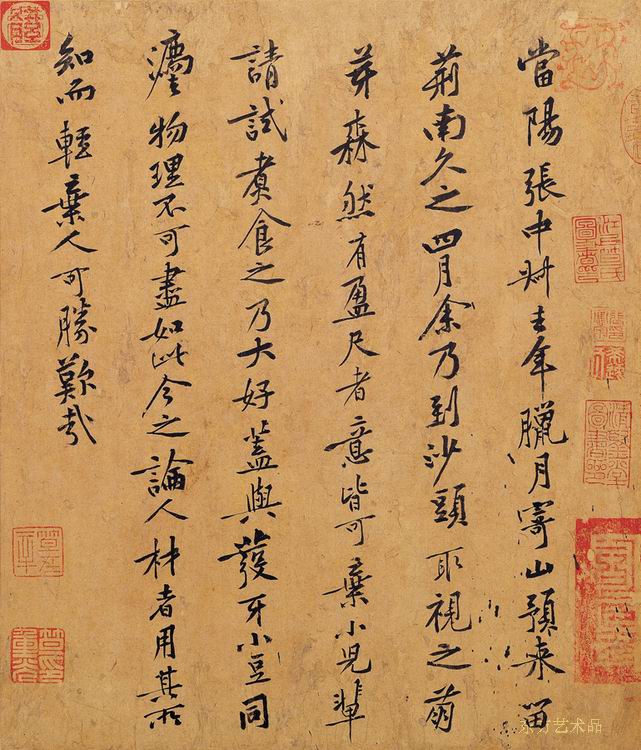 當陽張中叔去年臘月寄山預来留
荊南久之四月余乃到沙頭取視之萌
芽森然有盈尺者意皆可棄小兒輩
請試煑食之乃大好蓋與發牙小豆同
灋物理不可盡如此今之論人材者用其所
知而輕棄人可勝歎哉
东方艺术品